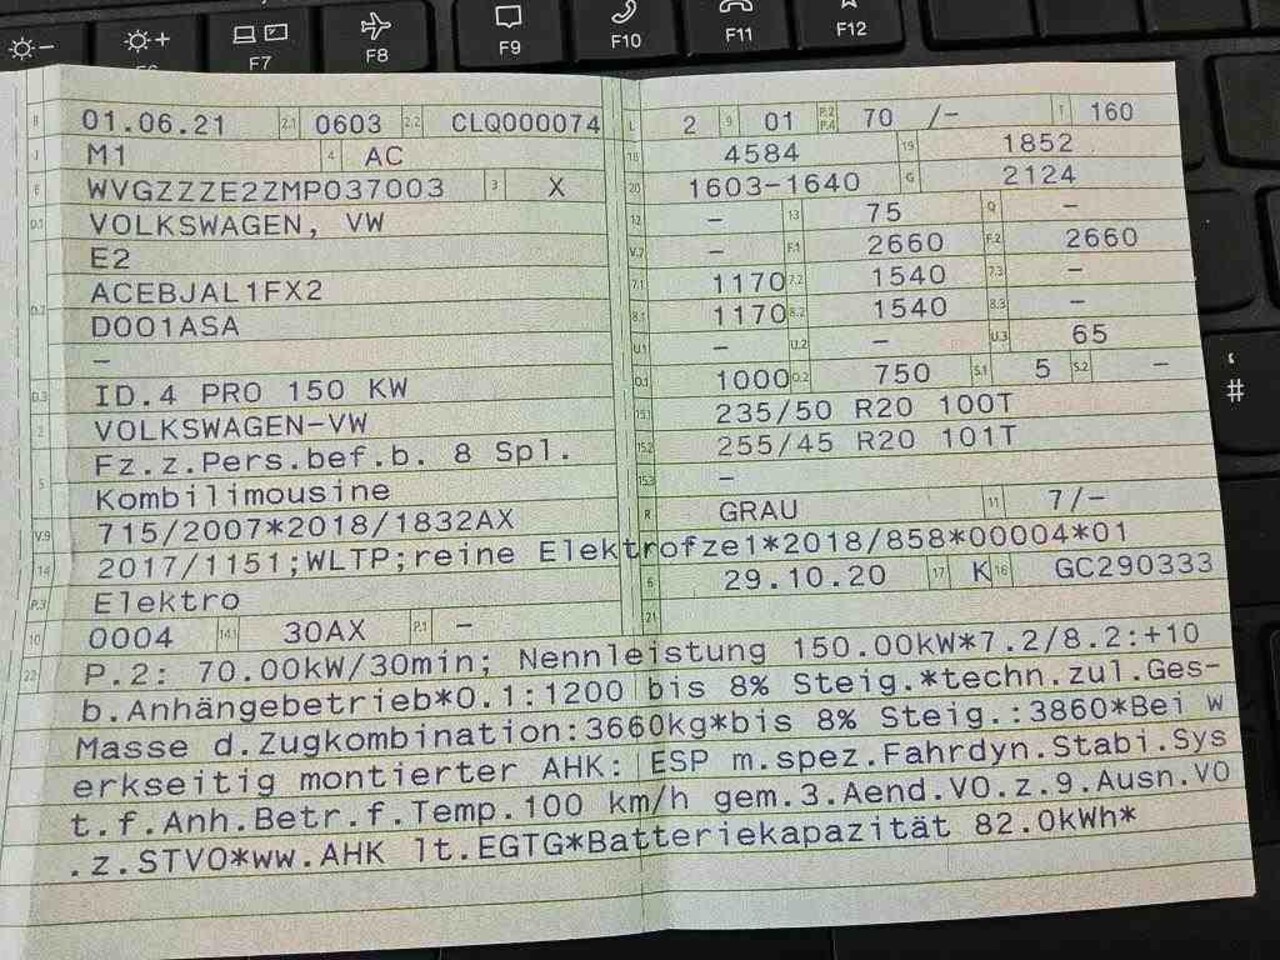 F7
F8
F9
F10
F11
F12
B 01.06.21 2.1 0603 2.2 CLQ000074
J M1 4 AC
E WVGZZZE2ZMP037003 3 X
D.1 VOLKSWAGEN, VW
E2
D.2 ACEBJAL1FX2
D001ASA
–
D.3 ID.4 PRO 150 KW
2 VOLKSWAGEN-VW
5 Fz.z.Pers.bef.b. 8 Spl.
Kombilimousine
V.9 715/2007*2018/1832AX
14 2017/1151;WLTP;reine Elektrofze1*2018/858*00004*01
P.3 Elektro
10 0004 14.1 30AX P.1 –
L 2 9 01 P.2 P.4 70 /– T 160
18 4584 19 1852
20 1603-1640 G 2124
12 – 13 75 Q –
V.7 – F.1 2660 F.2 2660
7.1 1170 7.2 1540 7.3 –
8.1 1170 8.2 1540 8.3 –
U.1 – U.2 – U.3 65
O.1 1000 O.2 750 S.1 5 S.2 –
15.1 235/50 R20 100T
15.2 255/45 R20 101T
15.3 –
R GRAU 11 7/–
6 29.10.20 17 K 16 GC290333
21
22 P.2: 70.00kW/30min; Nennleistung 150.00kW*7.2/8.2:+10
b.Anhängebetrieb*O.1:1200 bis 8% Steig.*techn.zul.Ges-
Masse d.Zugkombination:3660kg*bis 8% Steig.:3860*Bei w
erkseitig montierter AHK: ESP m.spez.Fahrdyn.Stabi.Sys
t.f.Anh.Betr.f.Temp.100 km/h gem.3.Aend.VO.z.9.Ausn.VO
.z.STVO*ww.AHK lt.EGTG*Batteriekapazität 82.0kWh*
#